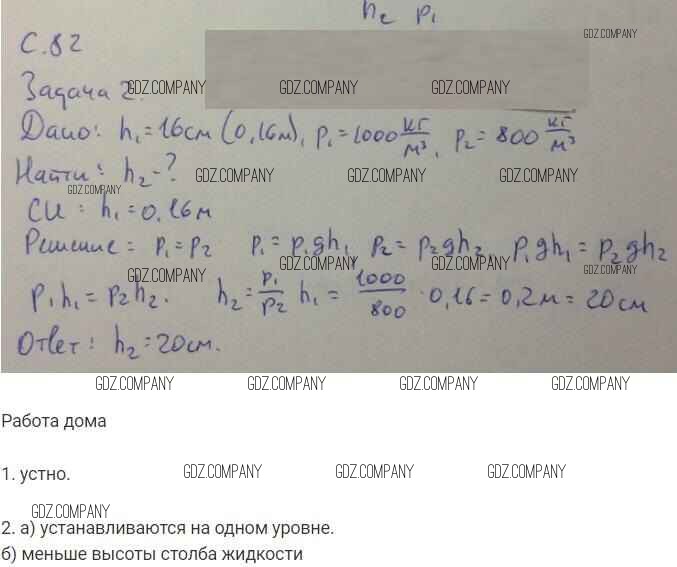 h₂ p₁
GDZ.COMPANY
С.82
GDZ.COMPANY GDZ.COMPANY GDZ.COMPANY
Задача 2.
Дано: h₁=16см (0,16м), p₁=1000 кг/м³, p₂=800 кг/м³
Найти: h₂-?
GDZ.COMPANY GDZ.COMPANY GDZ.COMPANY
GDZ.COMPANY
СИ: h₁=0,16м
Решение: p₁=p₂ p₁=p₁gh₁ p₂=p₂gh₂, p₁gh₁=p₂gh₂
GDZ.COMPANY GDZ.COMPANY GDZ.COMPANY GDZ.COMPANY
p₁h₁=p₂h₂. h₂=p₁/p₂ h₁=1000/800·0,16=0,2м=20см
Ответ: h₂=20см.
GDZ.COMPANY GDZ.COMPANY GDZ.COMPANY GDZ.COMPANY
Работа дома
1. устно.
GDZ.COMPANY GDZ.COMPANY GDZ.COMPANY
GDZ.COMPANY
2. а) устанавливаются на одном уровне.
б) меньше высоты столба жидкости